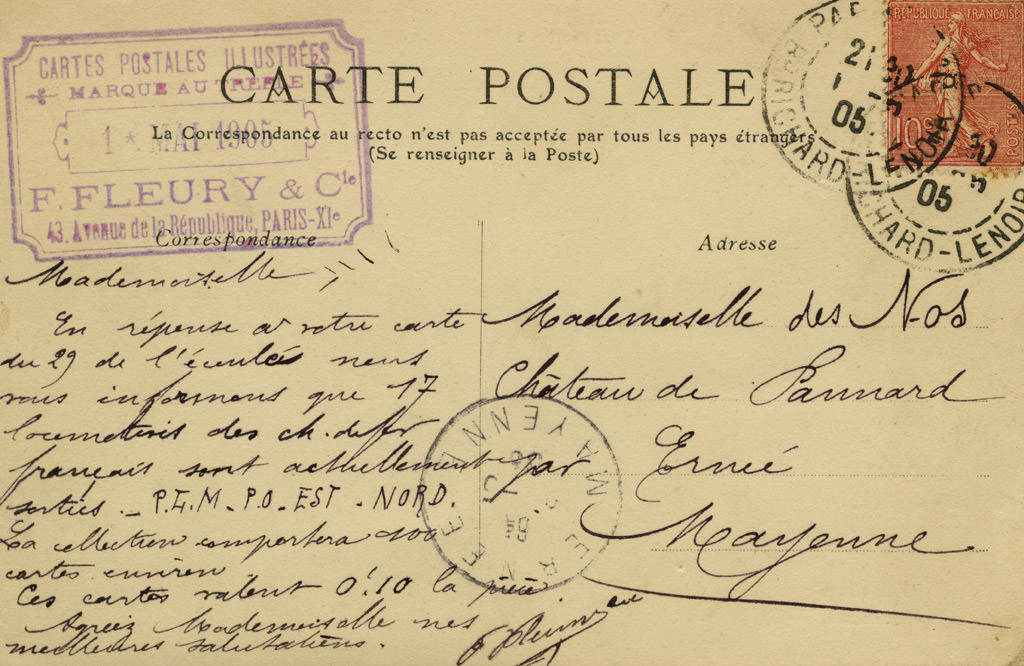 CARTES POSTALES ILLUSTRÉES
MARQUE AU TREFLE
1 * MAI 1905
F. FLEURY & Cie
43, Avenue de la République, PARIS-XIe
CARTE POSTALE
La Correspondance au recto n'est pas acceptée par tous les pays étrangers
(Se renseigner à la Poste)
RÉPUBLIQUE FRANÇAISE
10c
POSTES
PARIS
R. RICHARD-LENOIR
05
RICHARD-LENOIR
05
Correspondance
Adresse
Mademoiselle
En réponse à votre carte
du 29 de l'écoulé nous
vous informons que 17
locomotives des ch. de fer
français sont actuellement
sorties _ P.L.M - P.O. EST - NORD.
La collection comportera 100
cartes environ
Ces cartes valent 0f.10 la pièce.
Agréez Mademoiselle nos
meilleures salutations.
Mademoiselle des Nos
Château de Pannard
par Ernée
Mayenne
ERNÉE
MAYENNE